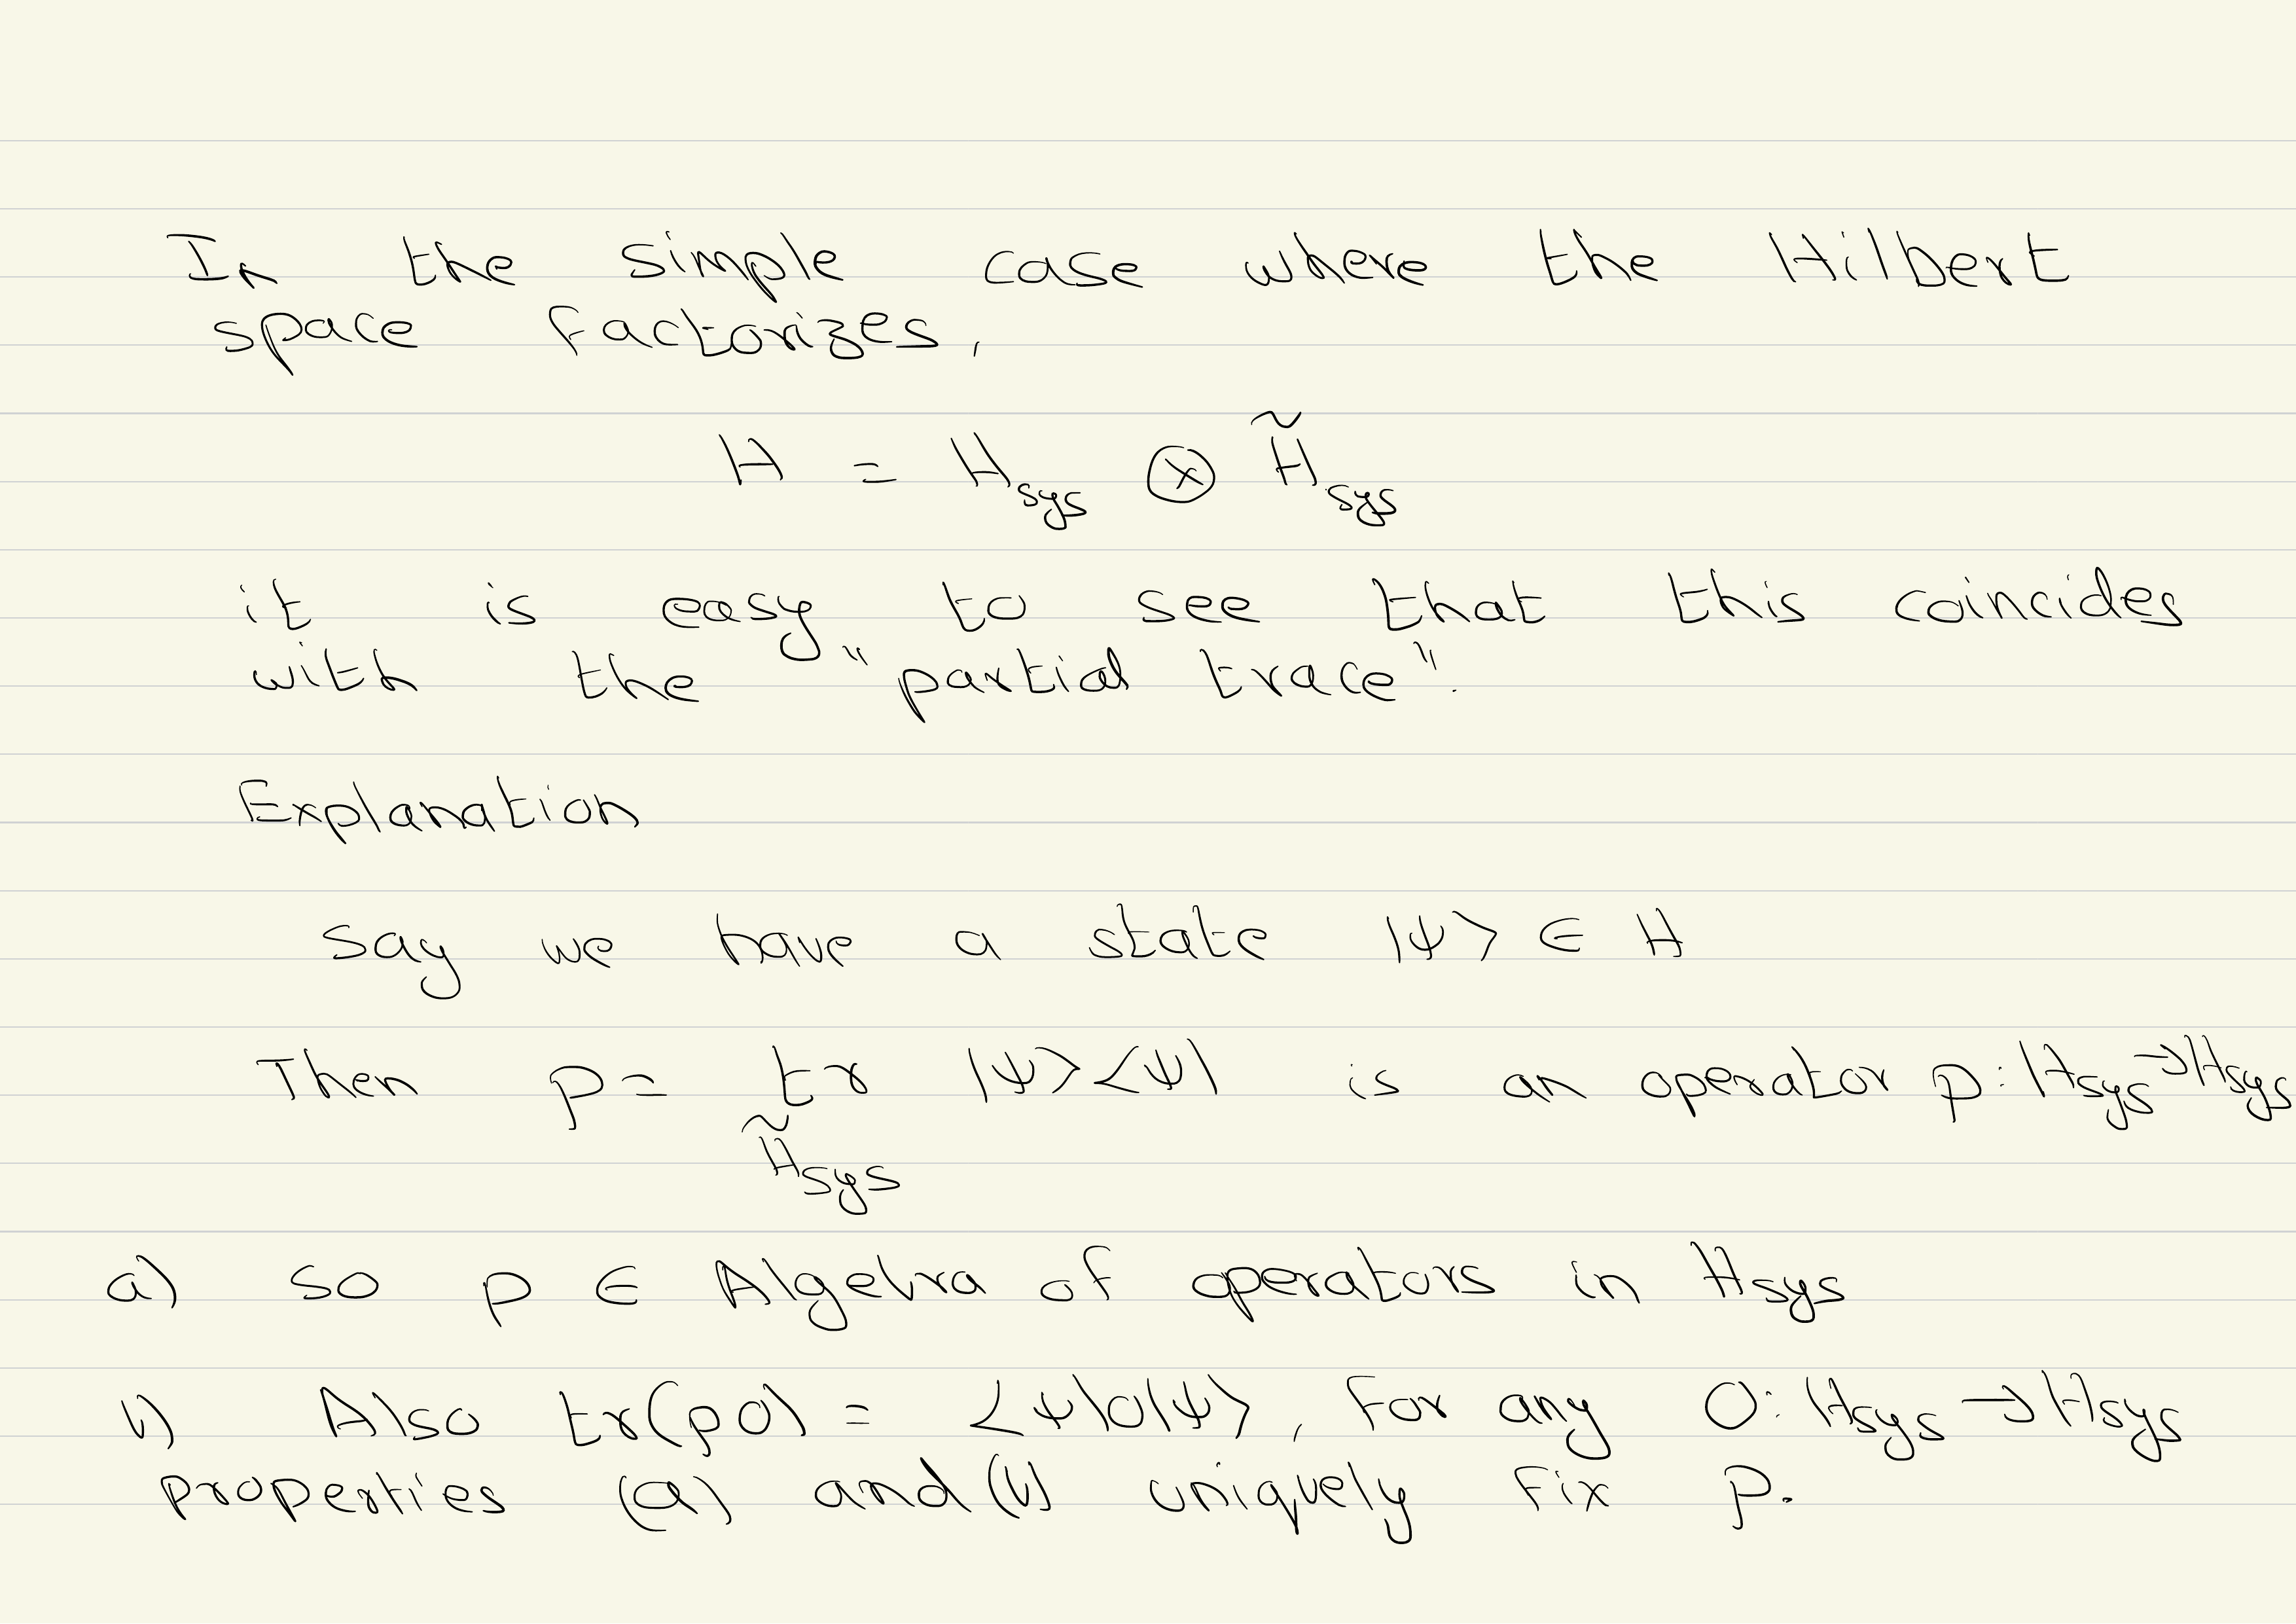 In the simple case where the Hilbert
space factorizes,
H = H_sys ⊗ H̃_sys
it is easy to see that this coincides
with the "partial trace".
Explanation
say we have a state |ψ⟩ ∈ H
Then ρ = tr_H̃sys |ψ⟩⟨ψ| is an operator ρ: H_sys → H_sys
a) so ρ ∈ Algebra of operators in H_sys
b) Also tr(ρO) = ⟨ψ|O|ψ⟩, for any O: H_sys → H_sys
properties (a) and (b) uniquely fix ρ.